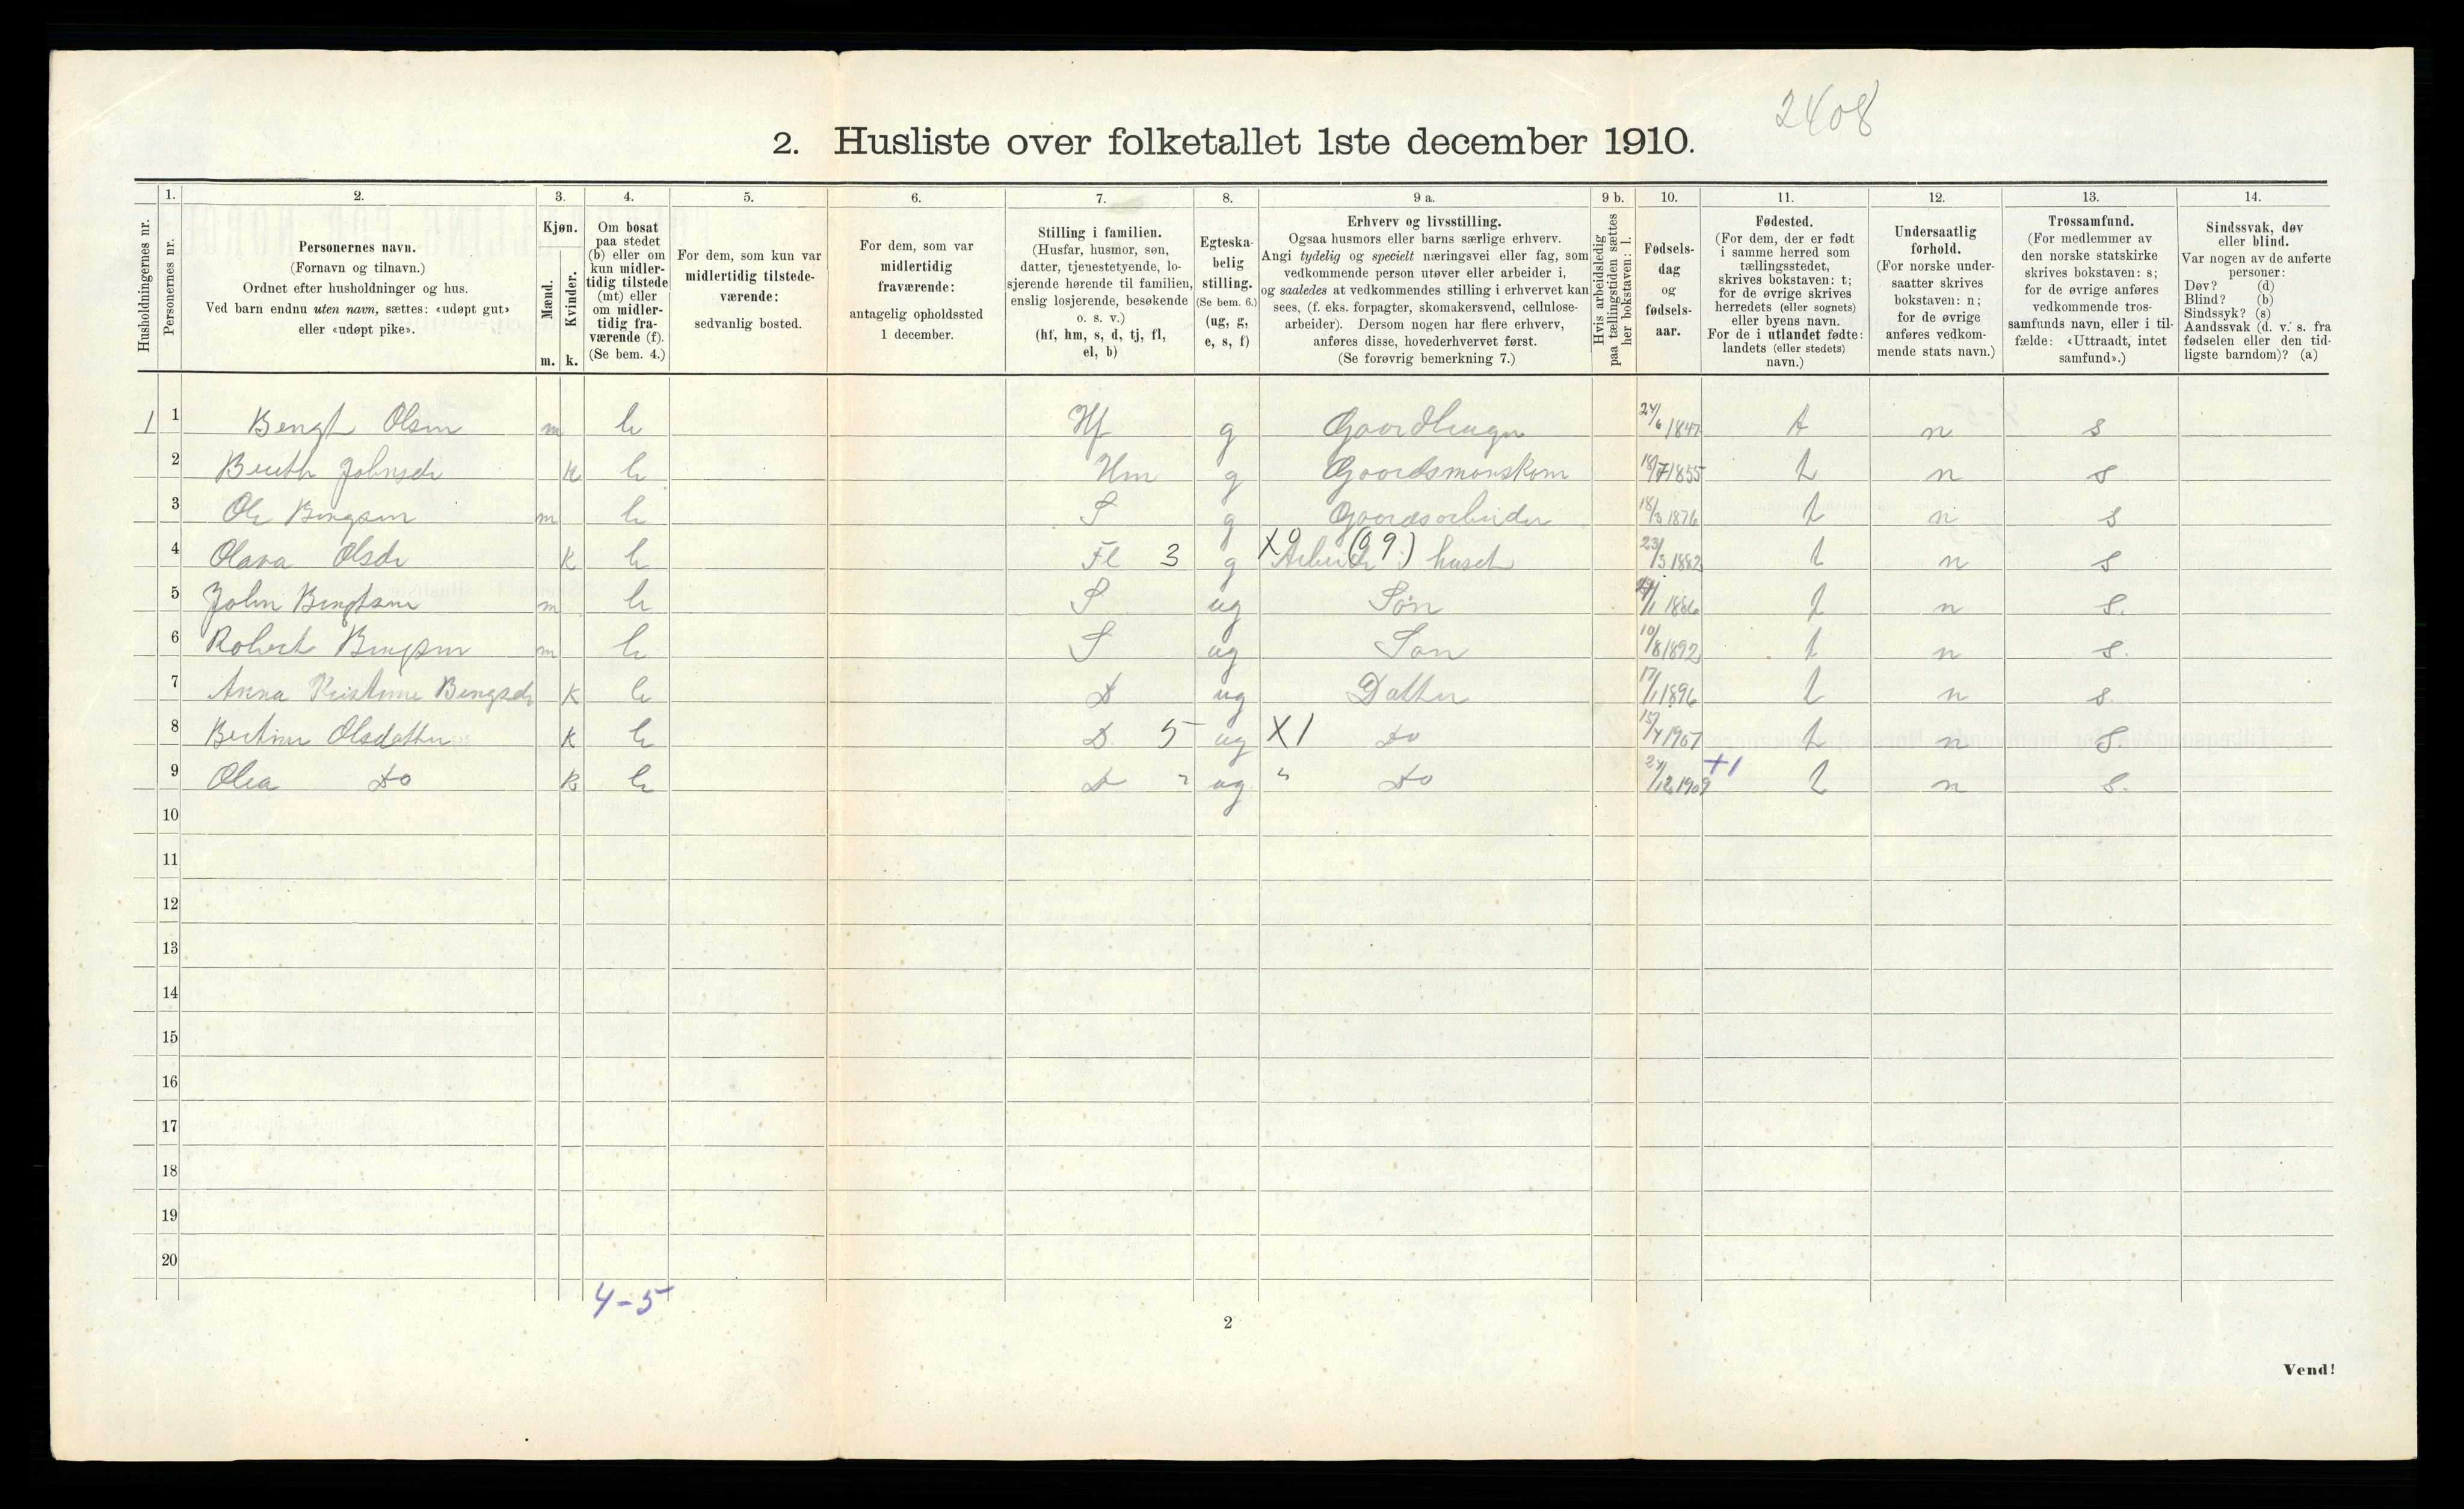 2408
2. Husliste over folketallet 1ste december 1910.
Husholdningernes nr.
1.
Personernes nr.
2.
Personernes navn.
(Fornavn og tilnavn.)
Ordnet efter husholdninger og hus.
Ved barn endnu uten navn, sættes: «udøpt gut»
eller «udøpt pike».
3.
Kjøn.
Mænd.
Kvinder.
m. k.
4.
Om bosat
paa stedet
(b) eller om
kun midler-
tidig tilstede
(mt) eller
om midler-
tidig fra-
værende (f).
(Se bem. 4.)
5.
For dem, som kun var
midlertidig tilstede-
værende:
sedvanlig bosted.
6.
For dem, som var
midlertidig
fraværende:
antagelig opholdssted
1 december.
7.
Stilling i familien.
(Husfar, husmor, søn,
datter, tjenestetyende, lo-
sjerende hørende til familien,
enslig losjerende, besøkende
o. s. v.)
(hf, hm, s, d, tj, fl,
el, b)
8.
Egteska-
belig
stilling.
(Se bem. 6.)
(ug, g,
e, s, f)
9 a.
Erhverv og livsstilling.
Ogsaa husmors eller barns særlige erhverv.
Angi tydelig og specielt næringsvei eller fag, som
vedkommende person utøver eller arbeider i,
og saaledes at vedkommendes stilling i erhvervet kan
sees, (f. eks. forpagter, skomakersvend, cellulose-
arbeider). Dersom nogen har flere erhverv,
anføres disse, hovederhvervet først.
(Se forøvrig bemerkning 7.)
9 b.
Hvis arbeidsledig
paa tællingstiden sættes
her bokstaven: l.
10.
Fødsels-
dag
og
fødsels-
aar.
11.
Fødested.
(For dem, der er født
i samme herred som
tællingsstedet,
skrives bokstaven: t;
for de øvrige skrives
herredets (eller sognets)
eller byens navn.
For de i utlandet fødte:
landets (eller stedets)
navn.)
12.
Undersaatlig
forhold.
(For norske under-
saatter skrives
bokstaven: n;
for de øvrige
anføres vedkom-
mende stats navn.)
13.
Trossamfund.
(For medlemmer av
den norske statskirke
skrives bokstaven: s;
for de øvrige anføres
vedkommende tros-
samfunds navn, eller i til-
fælde: «Uttraadt, intet
samfund».)
14.
Sindssvak, døv
eller blind.
Var nogen av de anførte
personer:
Døv? (d)
Blind? (b)
Sindssyk? (s)
Aandssvak (d. v. s. fra
fødselen eller den tid-
ligste barndom)? (a)
1 1 Bengt Olsen m b Hf g Gaardbruger 24/6 1847 t n s
2 Johnsdr k b Hm g Gaardsmanskone 18/7 1855 t n s
3 Ole Bengsen m b S g Gaardsarbeider 18/3 1876 t n s
4 Olava Olsdr k b Fl 3 g X0 (09.) Arbeide huset 23/3 1882 t n s
5 John Bengtsen m b S ug Søn 1886 t n s.
6 Robert Bengsen m b S ug Søn 10/8 1892 t n s.
7 Anna Kristine Bengsdr k b D ug Datter 17/1 1896 t n s.
8 Bertine Olsdatter k b D. 5 ug X1 Do 15/4 1907 t n s
9 Olea Do k b D " ug " Do 24/12 1909 +1 t n s.
10
11
12
13
14
15
16
17
18
19
20
4-5
2
Vend!